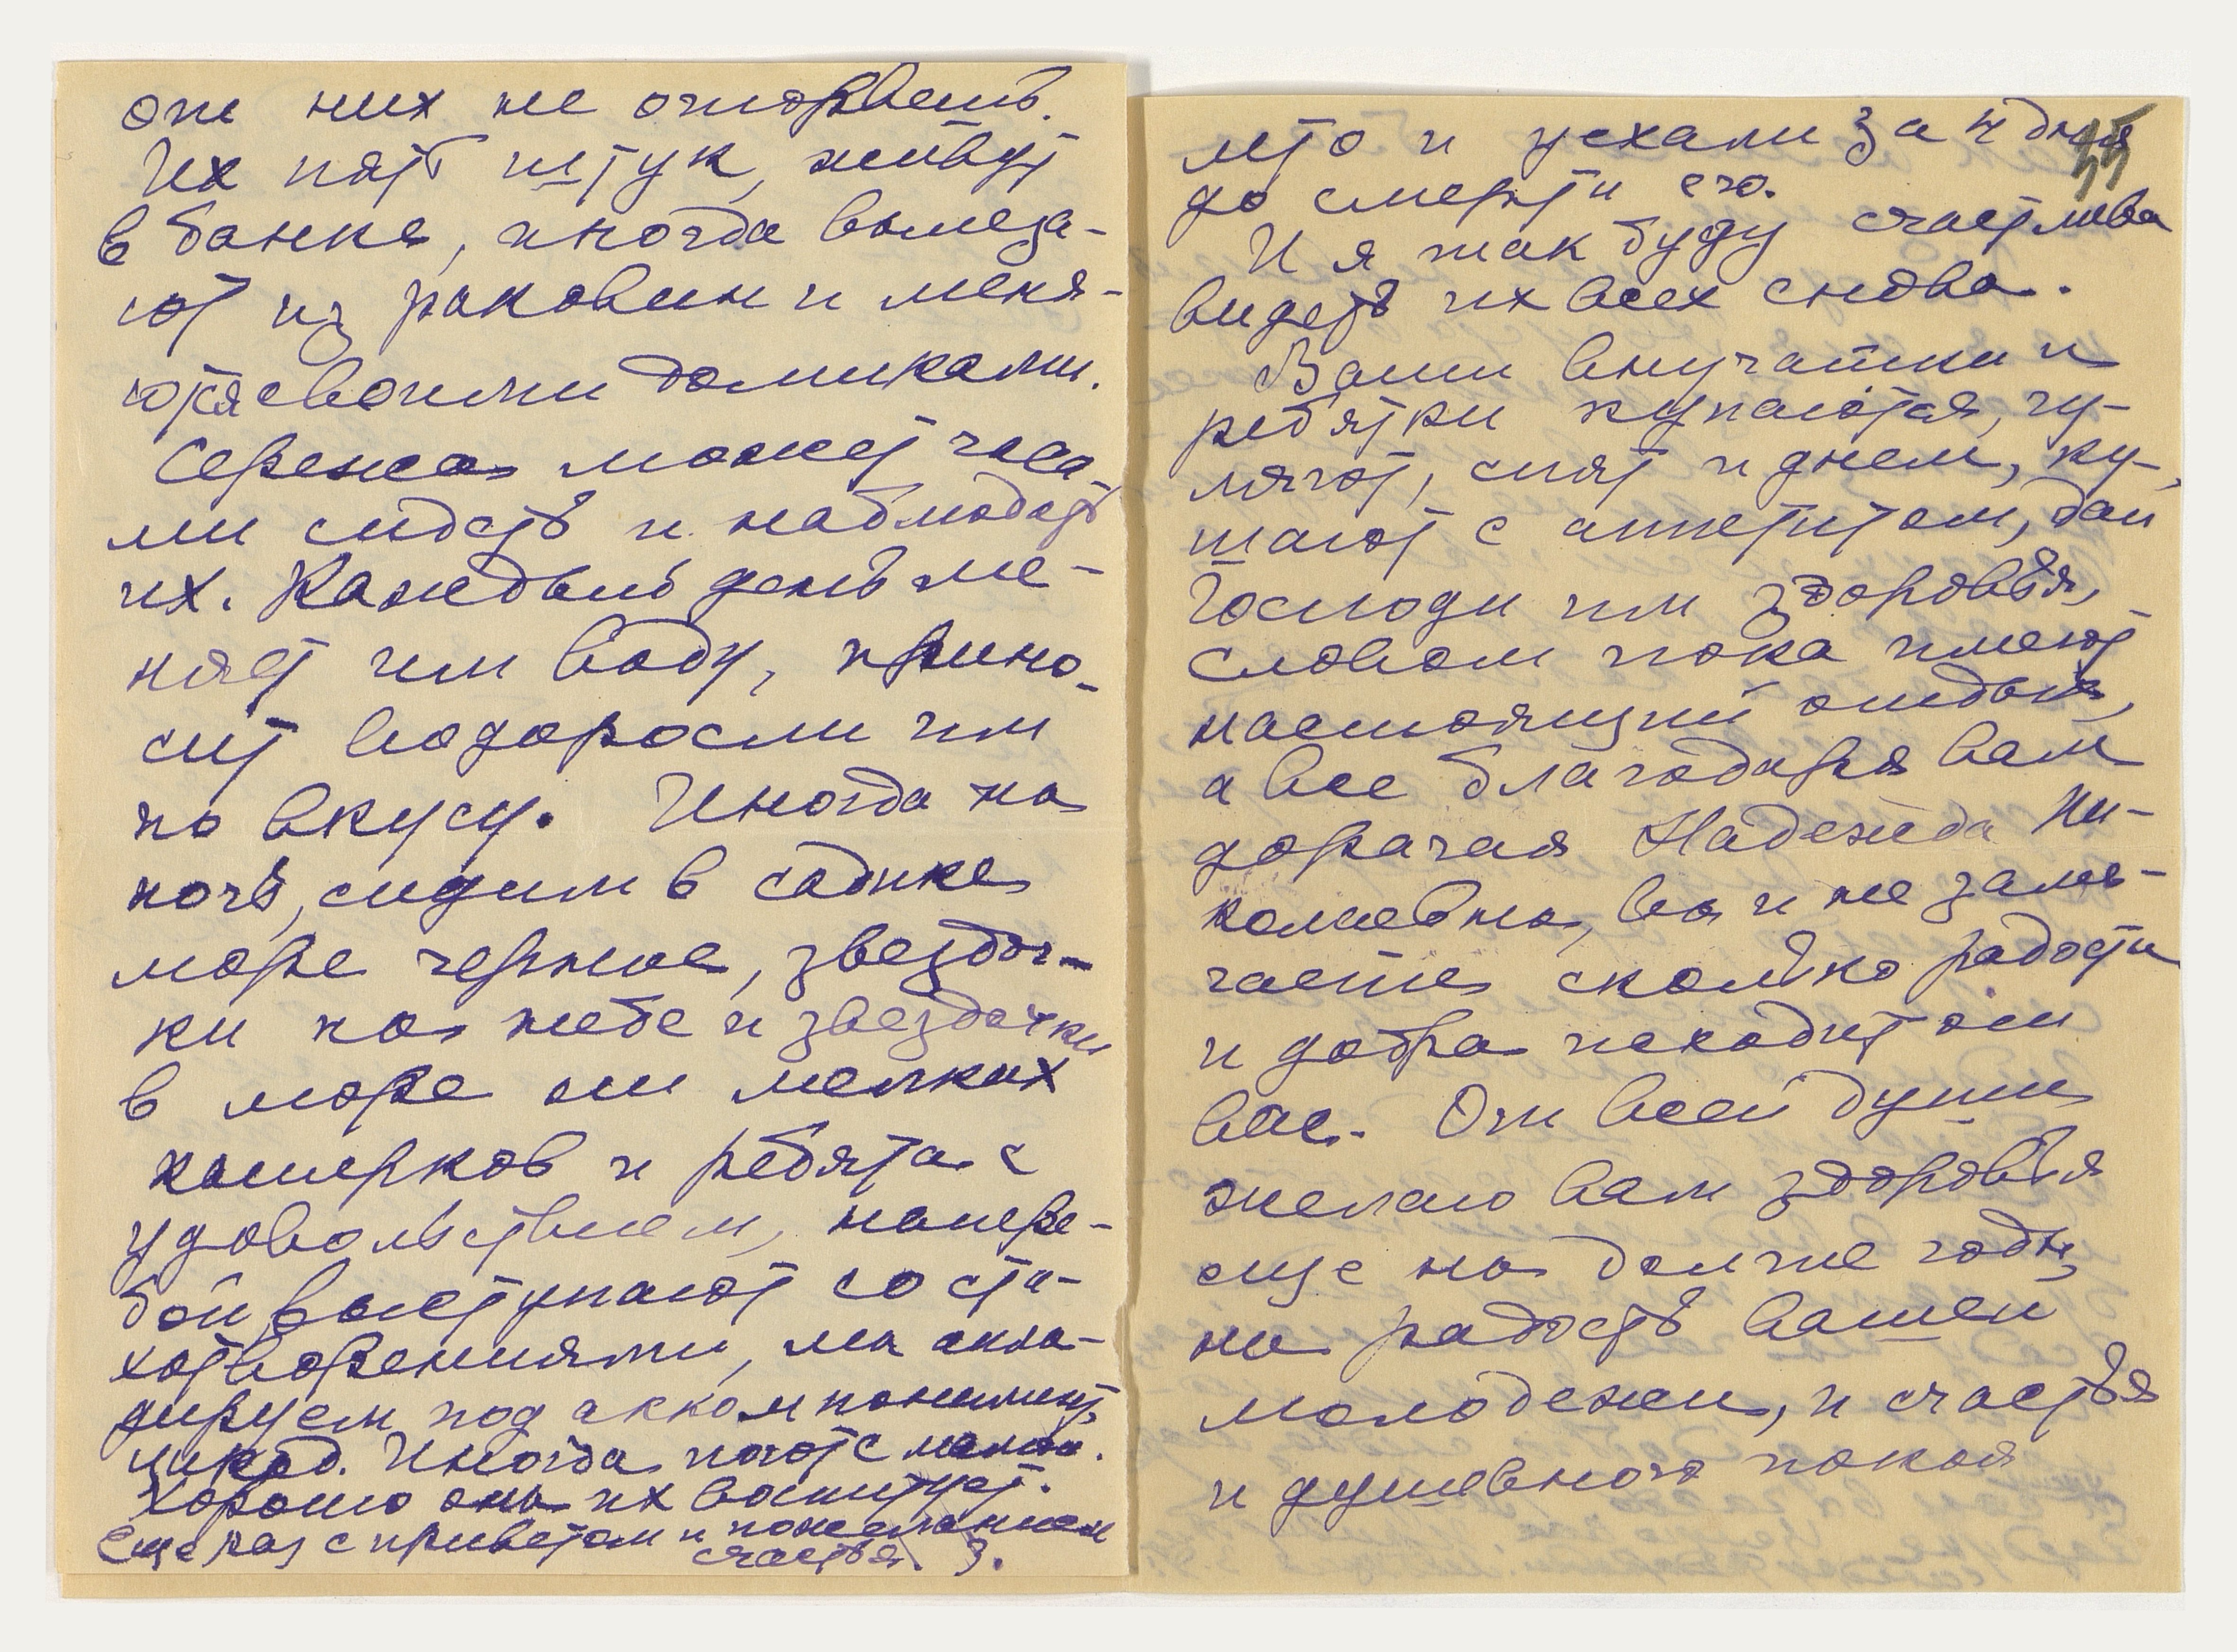 от них не оторвешь.
Их пять штук, живут
в банке, иногда вылеза-
ют из раковин и меня-
ются своими домиками.
Сережа может часа-
ми сидеть и наблюдать
их. Каждый день ме-
няет им воду, прино-
сит водоросли им
по вкусу. Иногда на
ночь, сидим в садике
море черное, звездоч-
ки на небе и звездочки
в море от мелких
катерков и ребята с
удовольствием, напере-
бой выступают со сти-
хотворениями, мы апло-
дируем под аккомпонимент
цикад. Иногда поют с мамой.
Хорошо она их воспитует.
Еще раз с приветом и пожеланием
счастья. З.
35
лето и уехали за 4 дня
до смерти его.
И я так буду счастлива
видеть их всех снова.
Ваши внучатки и
ребятки купаются, гу-
ляют, спят и днем, ку-
шают с аппетитом, дай
Господи им здоровья,
словом пока имеют
настоящий отдых,
а все благодаря вам
дорогая Надежда Ни-
колаевна, вы и не заме-
чаете сколько радости
и добра исходит от
вас. От всей души
желаю вам здоровья
еще на долгие годы,
на радость вашей
молодежи, и счастья
и душевного покоя